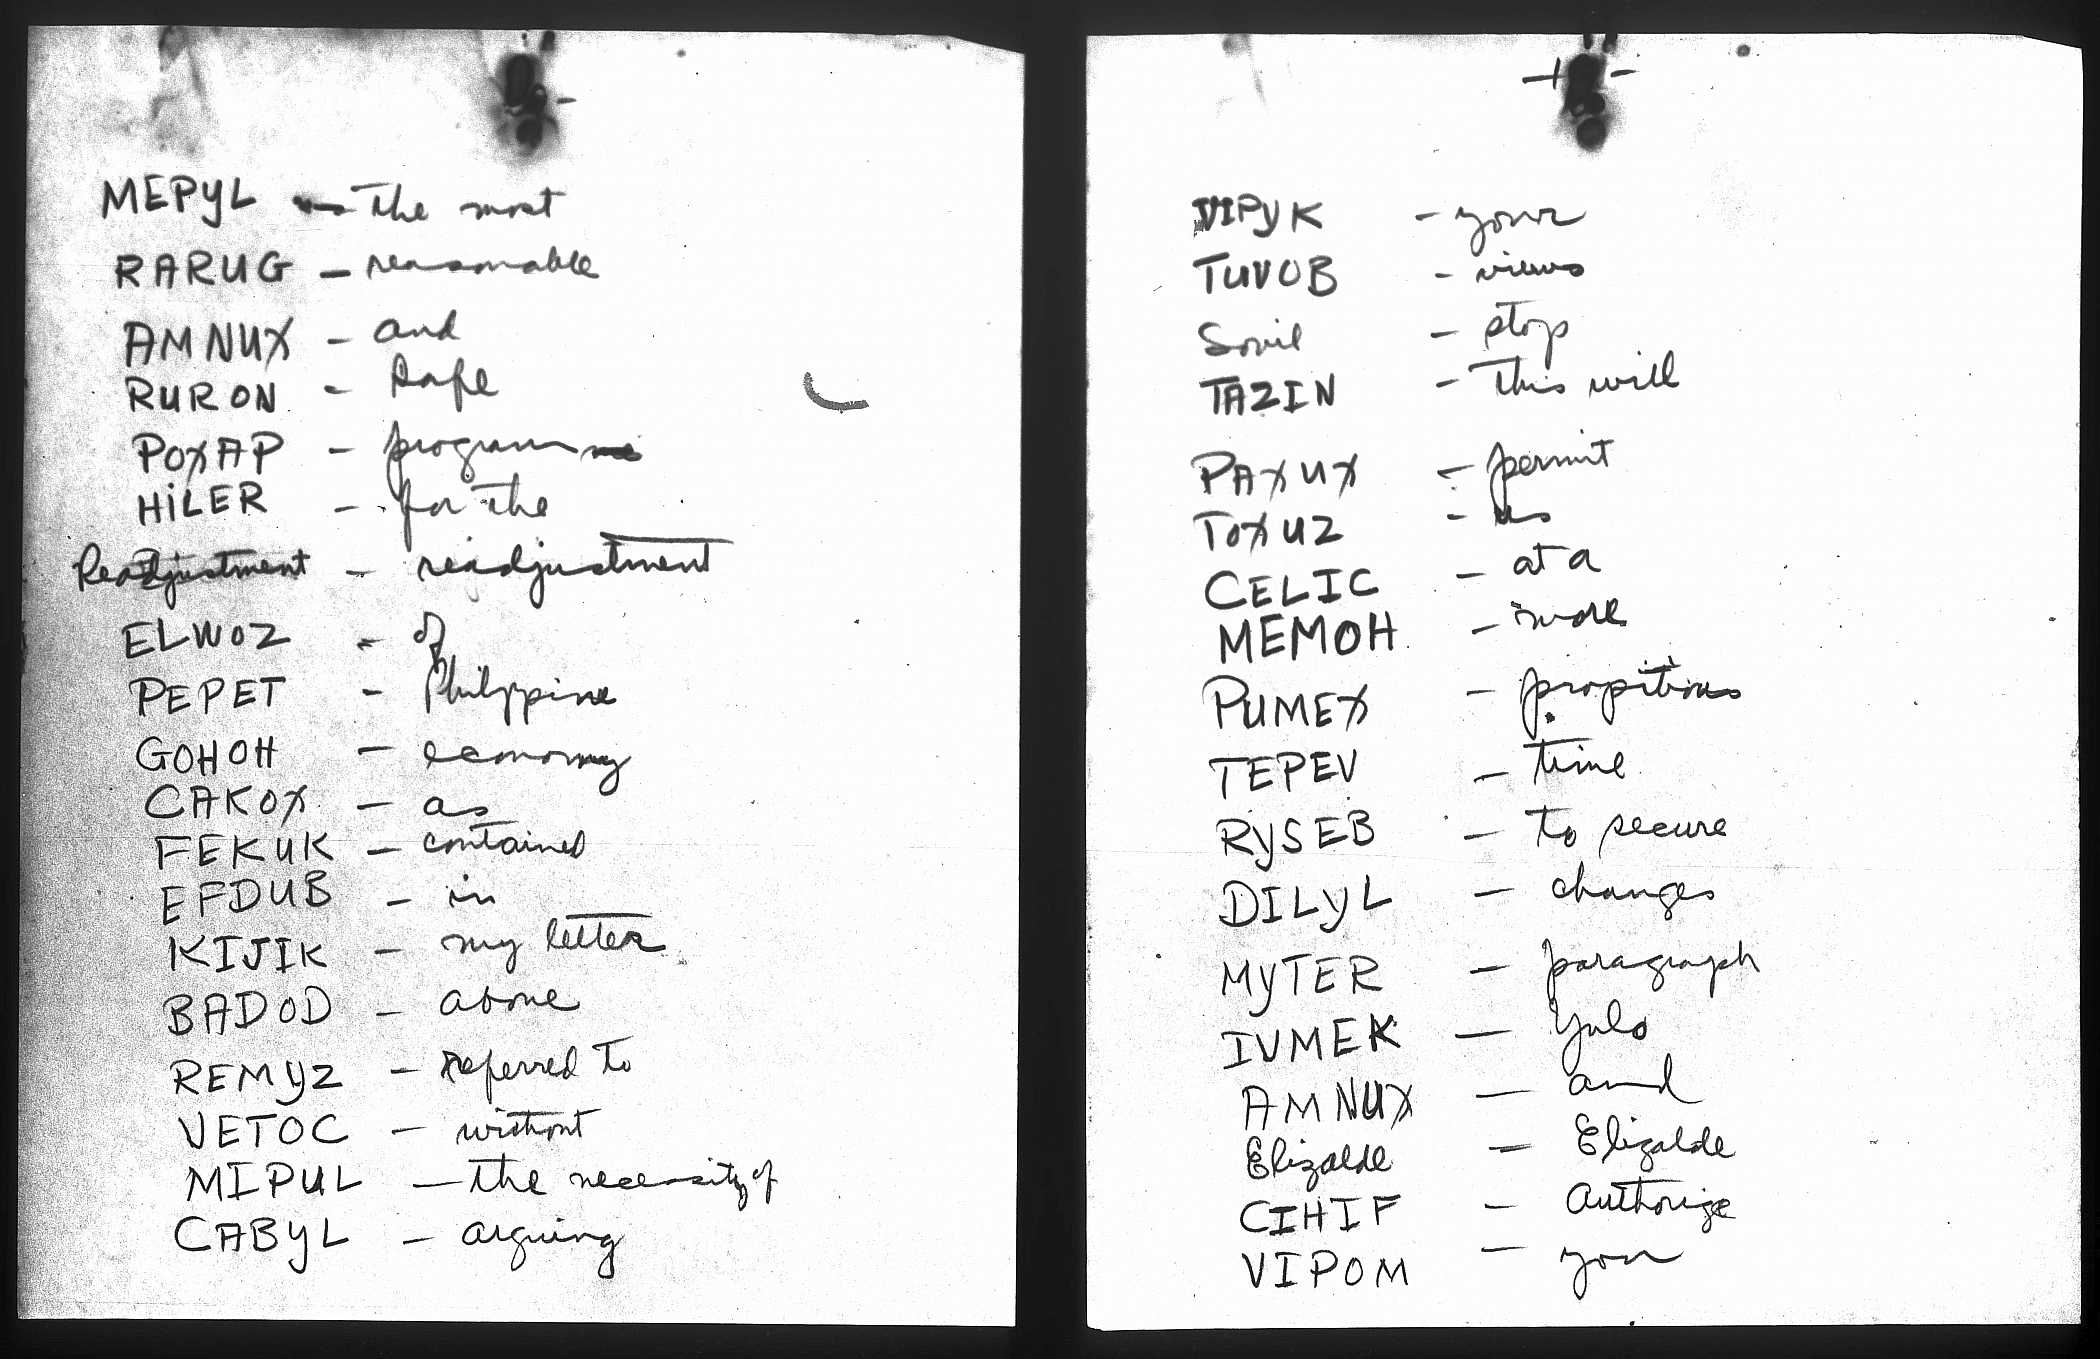 MEPYL - The most
RARUG - reasonable
AMNUX - and
RURON - safe
POXAP - program
HILER - for the
Readjustment - readjustment
ELWOZ - of
PEPET - Philippine
GOHOH - economy
CAKOX - as
FEKUK - contained
EFDUB - in
KIJIK - my letter
BADOD - above
REMYZ - referred to
VETOC - without
MIPUL - the necessity of
CABYL - arguing
VIPYK - your
TUVOB - views
Sovil - stop
TAZIN - This will
PAXUX - permit
TOXUZ - us
CELIC - at a
MEMOH - more
PUMEX - propitious
TEPEV - time
RYSEB - to secure
DILYL - changes
MYTER - paragraph
IVMEK - Yulo
AMNUX - and
Elizalde - Elizalde
CIHIF - authorize
VIPOM - you